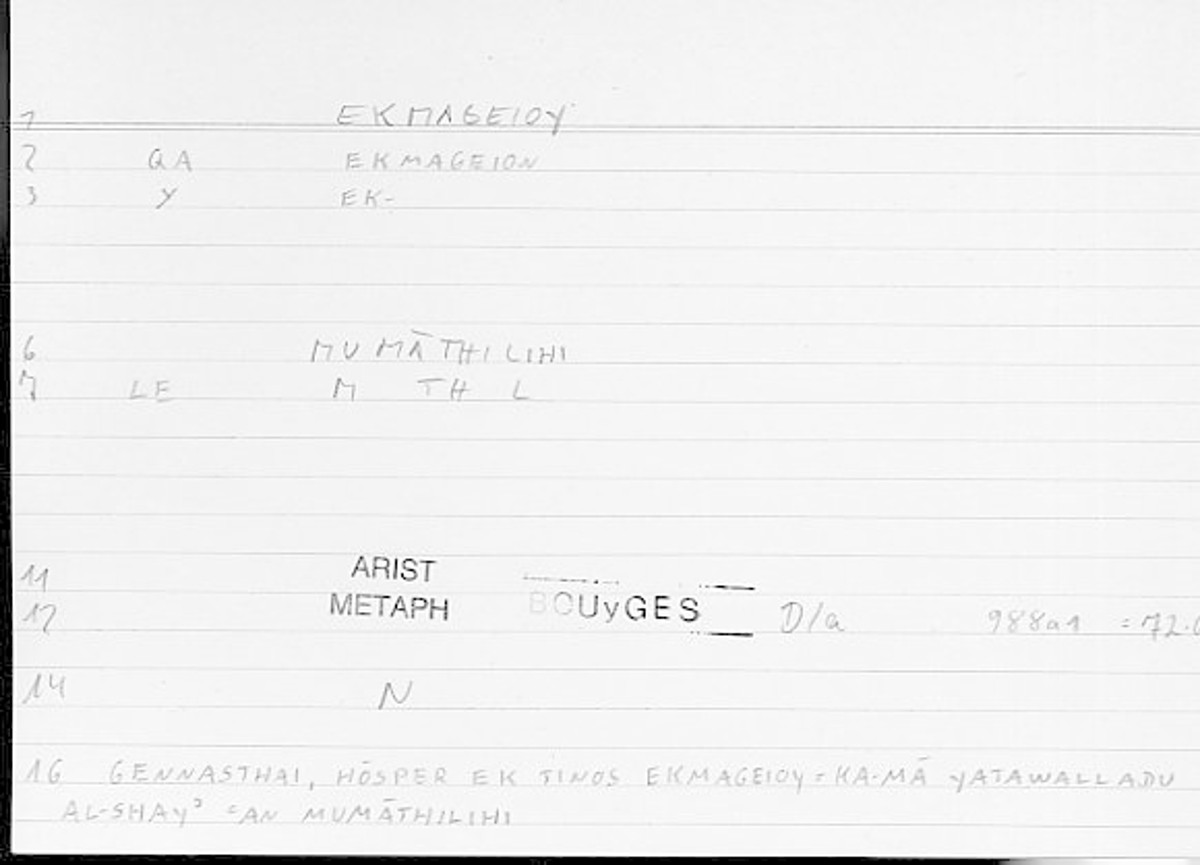 1 EKMAGEIOY
2 QA EKMAGEION
3 Y EK-
6 MUMĀTHILIHI
7 LE M TH L
11 ARIST
12 METAPH BOUyGES D/a 988a1 = 72.
14 N
16 GENNASTHAI, HŌSPER EK TINOS EKMAGEIOY = KA-MĀ YATAWALLADU
AL-SHAYʾ ʿAN MUMĀTHILIHI